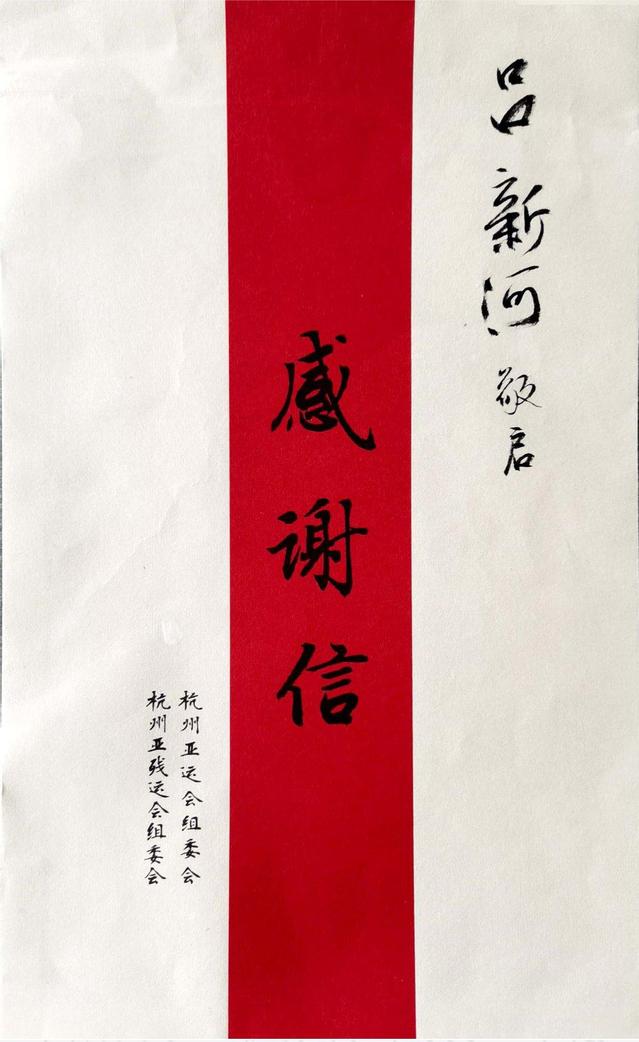 吕新河敬启
感谢信
杭州亚运会组委会
杭州亚残运会组委会